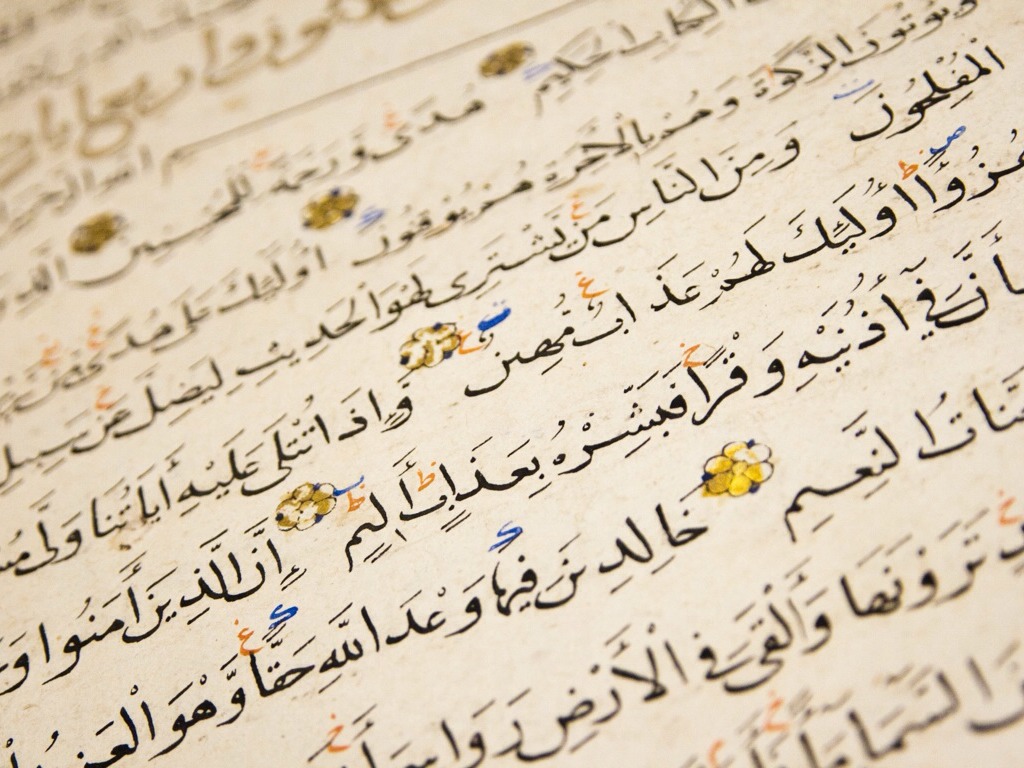 بسم الله الرحمن
الكتاب الحكيم هدى ورحمة للمحسنين الذين
ويؤتون الزكوة وهم بالآخرة هم يوقنون اولئك على هدى من
المفلحون ومن الناس من يشترى لهو الحديث ليضل عن سبيل
هُزُوًا أُولَئِكَ لَهُمْ عَذَابٌ مُهِين وَإِذَا تُتْلَى عَلَيْهِ أَيَاتُنَا وَلَّى
كَأَنَّ فِي أُذُنَيْهِ وَقْرًا فَبَشِّرْهُ بِعَذَابٍ أَلِيمٍ إِنَّ الَّذِينَ أَمَنُوا وَ
جَنَّاتُ النَّعِيمِ خَالِدِينَ فِيهَا وَعْدَ اللَّهِ حَقًّا وَهُوَ الْعَزِيزُ
تَرَوْنَهَا وَأَلْقَى فِي الْأَرْضِ رَوَاسِيَ أَن
السَّمَاءِ